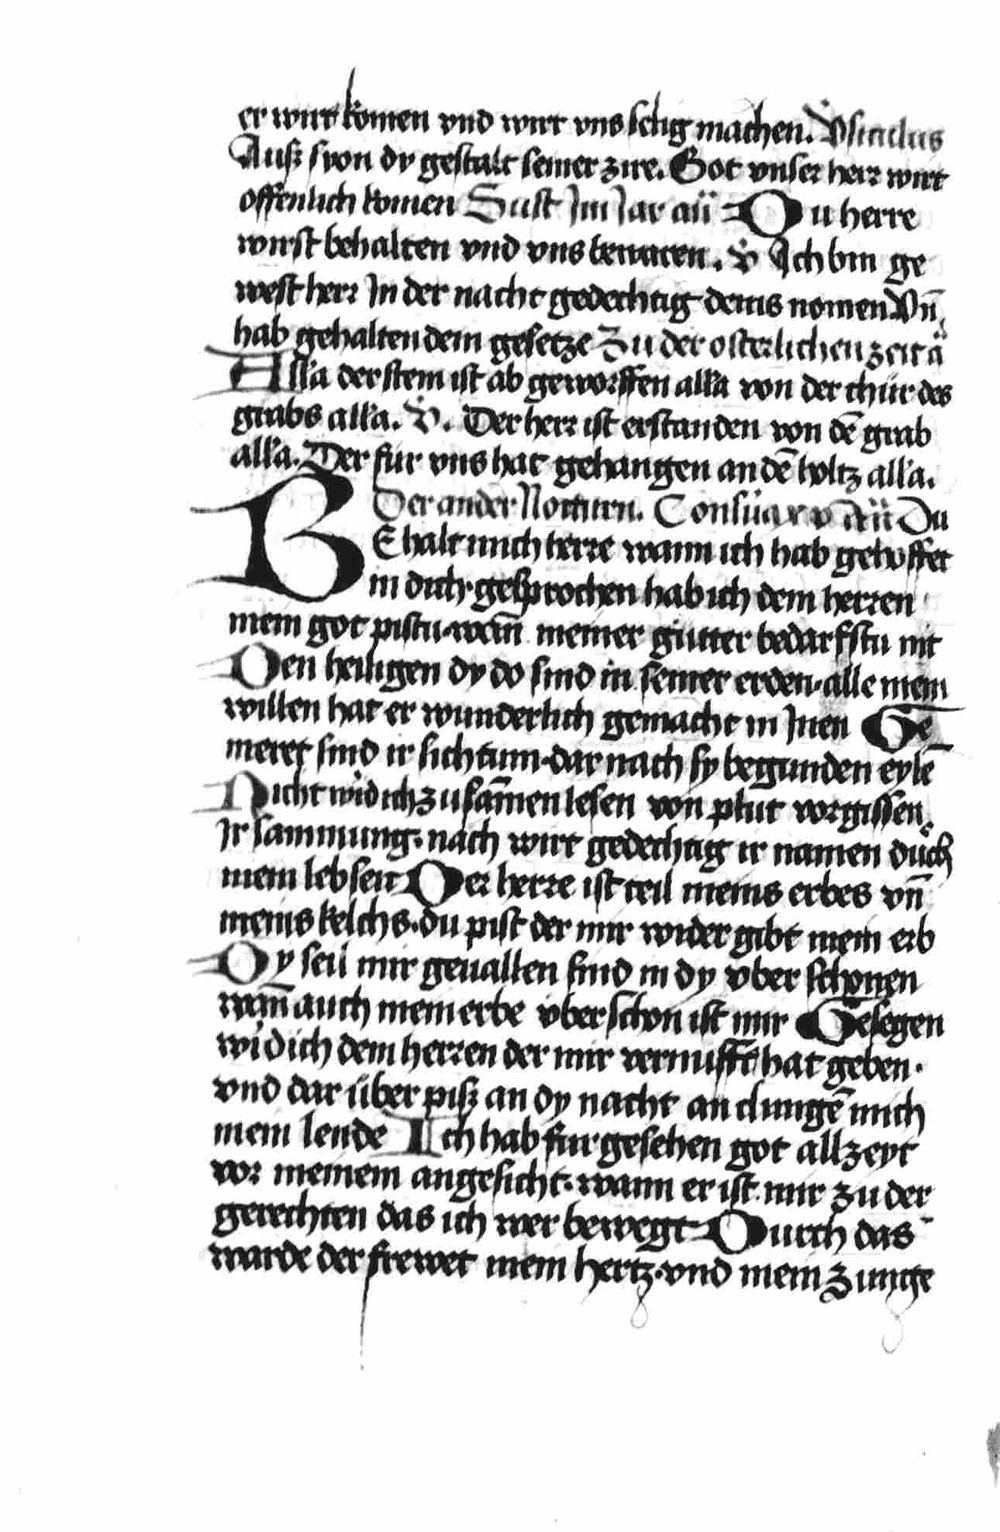 er wirt komen vnd wirt vns selig machen. V̇siculus
Auß syon dy gestalt seiner zire. Got vnser herr wirt
offenlich komen Sust Im Iar añ Du herre
wirst behalten vnd vns bewaren. V̇ Ich bin ge
west herr In der nacht gedechtig deins nomen Vn̄
hab gehalten dein gesetze Zu der osterlichen zeit ā
Alla der stein ist ab geworffen alla von der thür des
grabs alla. V̇. Der herr ist erstanden von dē grab
alla. Der für vns hat gehangen an dē holtz alla.
Der ander Nocturn. Consũa xv añ Du
BEhalt mich herre wann ich hab gehoffet
in dich. gesprochen hab ich dem herren
mein got pistu. wan̄ meiner gütter bedarfstu nit
Den heiligen dy do sind in seiner erden. alle mein
willen hat er wunderlich gemacht in Inen Ge
meret sind ir sichtum. dar nach sy begunden eylē
Nicht wïd ich zu samen lesen von plut vorgissen
Ir sammung. nach wirt gedechtig ir namen durch
mein lebsen Der herre ist teil meins erbes vn̄
meins kelchs. du pist der mir wider gibt mein erb
Dy seil mir geuallen sind in dy vber schonen
wan̄ auch mein erbe vber schon ist mir Gesegen
wïd ich dem herren der mir vernufft hat geben.
vnd dar über piß an dy nacht an clungē mich
mein lende Ich hab fur gesehen got allzeyt
vor meinem angesicht. wann er ist mir zu der
gerechten das ich wer bewegt Durch das
warde der frewet mein hertz. vnd mein zunge